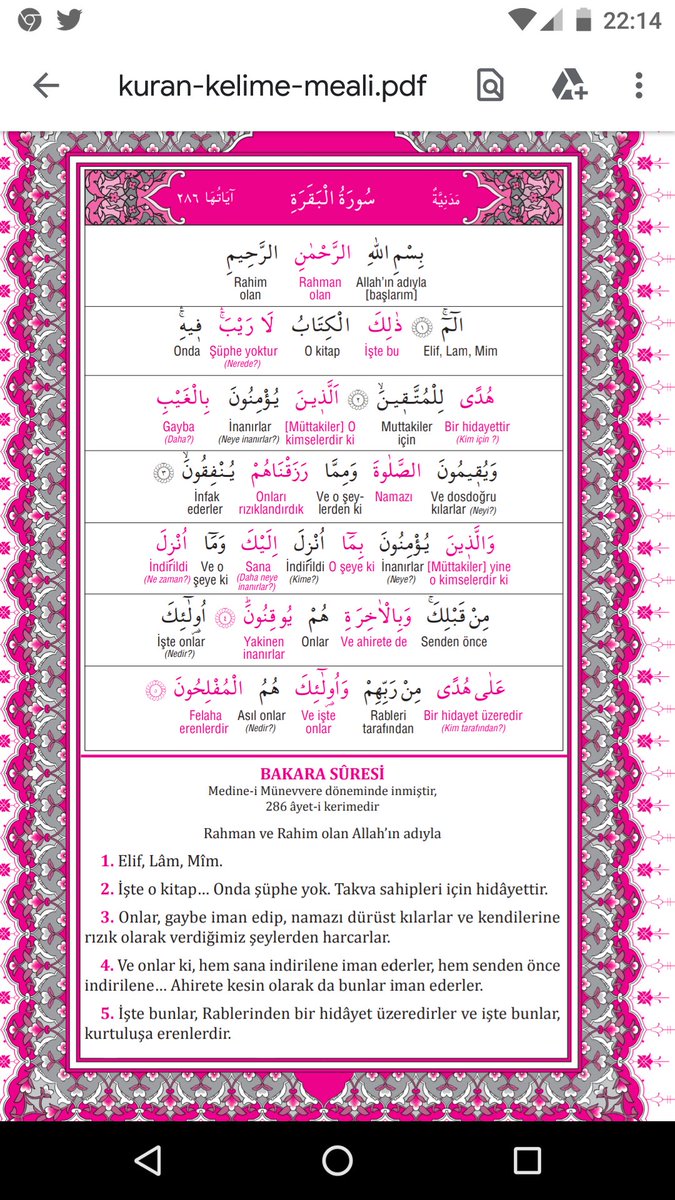 22:14
kuran-kelime-meali.pdf
مَدَنِيَّةٌ سُورَةُ الْبَقَرَةِ اٰيَاتُهَا ٢٨٦
بِسْمِ اللّٰهِ الرَّحْمٰنِ الرَّحٖيمِ
Allah'ın adıyla [başlarım] Rahman olan Rahim olan
الٓمٓ ﴿١﴾ ذٰلِكَ الْكِتَابُ لَا رَيْبَۚ فٖيهِۚ
Elif, Lam, Mim İşte bu O kitap Şüphe yoktur (Nerede?) Onda
هُدًى لِلْمُتَّقٖينَۙ ﴿٢﴾ اَلَّذٖينَ يُؤْمِنُونَ بِالْغَيْبِ
Bir hidayettir (Kim için ?) Muttakiler için [Müttakiler] O kimselerdir ki İnanırlar (Neye inanırlar?) Gayba (Daha?)
وَيُقٖيمُونَ الصَّلٰوةَ وَمِمَّا رَزَقْنَاهُمْ يُنْفِقُونَۙ ﴿٣﴾
Ve dosdoğru kılarlar (Neyi?) Namazı Ve o şey-lerden ki Onları rızıklandırdık İnfak ederler
وَالَّذٖينَ يُؤْمِنُونَ بِمَٓا اُنْزِلَ اِلَيْكَ وَمَٓا اُنْزِلَ
[Müttakiler] yine o kimselerdir ki İnanırlar (Neye?) O şeye ki İndirildi (Kime?) Sana (Daha neye inanırlar?) Ve o şeye ki İndirildi (Ne zaman?)
مِنْ قَبْلِكَۚ وَبِالْاٰخِرَةِ هُمْ يُوقِنُونَۜ ﴿٤﴾ اُو۬لٰٓئِكَ
Senden önce Ve ahirete de Onlar Yakinen inanırlar İşte onlar (Nedir?)
عَلٰى هُدًى مِنْ رَبِّهِمْ وَاُو۬لٰٓئِكَ هُمُ الْمُفْلِحُونَ ﴿٥﴾
Bir hidayet üzeredir (Kim tarafından?) Rableri tarafından Ve işte onlar Asıl onlar (Nedir?) Felaha erenlerdir
BAKARA SÛRESİ
Medine-i Münevvere döneminde inmiştir,
286 âyet-i kerimedir
Rahman ve Rahim olan Allah'ın adıyla
1. Elif, Lâm, Mîm.
2. İşte o kitap… Onda şüphe yok. Takva sahipleri için hidâyettir.
3. Onlar, gaybe iman edip, namazı dürüst kılarlar ve kendilerine
rızık olarak verdiğimiz şeylerden harcarlar.
4. Ve onlar ki, hem sana indirilene iman ederler, hem senden önce
indirilene… Ahirete kesin olarak da bunlar iman ederler.
5. İşte bunlar, Rablerinden bir hidâyet üzeredirler ve işte bunlar,
kurtuluşa erenlerdir.